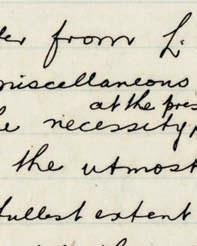 from L.
miscellaneous
at the pres
necessity,
the utmost
fullest extent